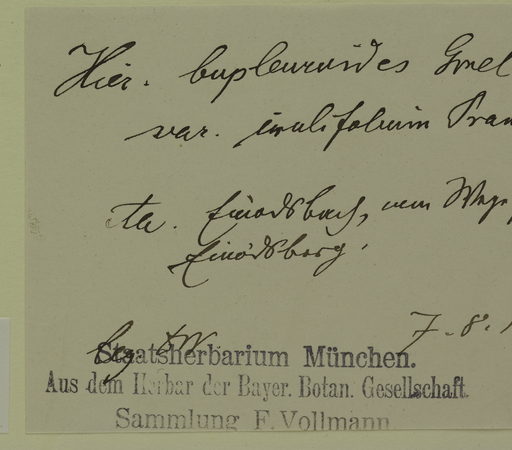 Hier. bupleuroides Gmel
var. inulifolium Pran
Einödsbach, vom Wege
Einödsberg.
7. 8. 1
Staatsherbarium München.
Aus dem Herbar der Bayer. Botan. Gesellschaft.
Sammlung F. Vollmann